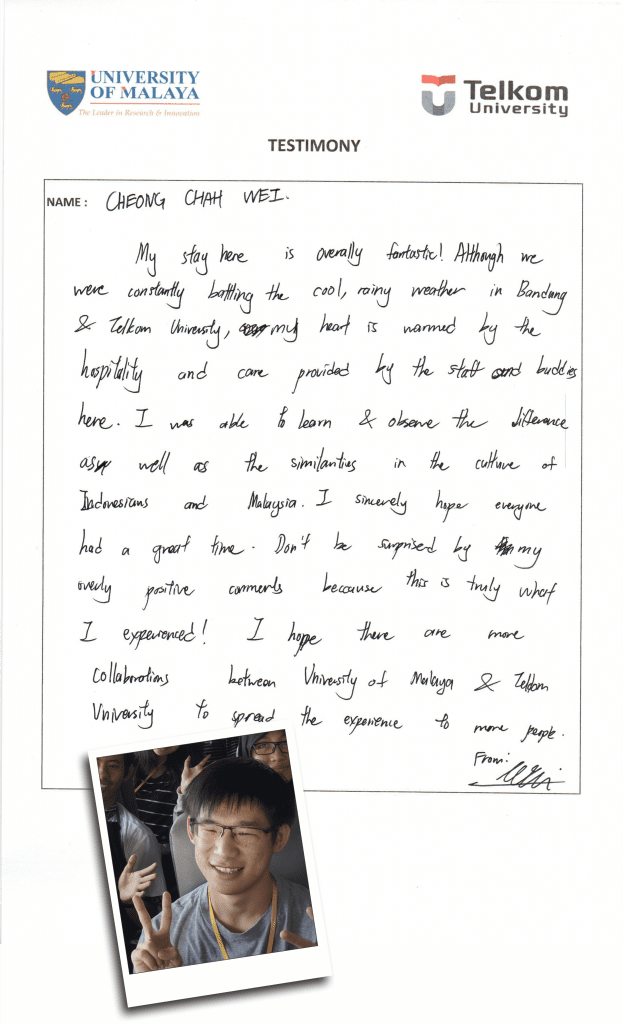 UNIVERSITY
OF MALAYA
The Leader in Research & Innovation
Telkom
University
TESTIMONY
NAME : CHEONG CHAH WEI.
My stay here is overally fantastic! Although we
were constantly battling the cool, rainy weather in Bandung
& Telkom University, my heart is warmed by the
hospitality and care provided by the staff and buddies
here. I was able to learn & observe the difference
as well as the similarities in the culture of
Indonesians and Malaysia. I sincerely hope everyone
had a great time. Don't be surprised by my
overly positive comments because this is truly what
I experienced! I hope there are more
collaborations between University of Malaya & Telkom
University to spread the experience to more people.
From: